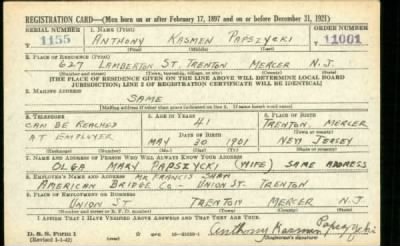 REGISTRATION CARD—(Men born on or after February 17, 1897 and on or before December 31, 1921)
SERIAL NUMBER 1. NAME (Print) ORDER NUMBER
1155 ANTHONY KASMEN PAPSZYCKI 11001
(First) (Middle) (Last)
2. PLACE OF RESIDENCE (Print)
627 LAMBERTON ST. TRENTON MERCER N.J.
(Number and street) (Town, township, village, or city) (County) (State)
[THE PLACE OF RESIDENCE GIVEN ON THE LINE ABOVE WILL DETERMINE LOCAL BOARD
JURISDICTION; LINE 2 OF REGISTRATION CERTIFICATE WILL BE IDENTICAL]
3. MAILING ADDRESS
SAME
4. TELEPHONE 5. AGE IN YEARS 6. PLACE OF BIRTH
CAN BE REACHED 41 TRENTON, MERCER
DATE OF BIRTH
AT EMPLOYER MAY 20 1901 NEW JERSEY
7. NAME AND ADDRESS OF PERSON WHO WILL ALWAYS KNOW YOUR ADDRESS
OLGA MARY PAPSZYCKI (WIFE) SAME ADDRESS
8. EMPLOYER'S NAME AND ADDRESS
MR. FRANCIS SHAW
AMERICAN BRIDGE CO - UNION ST. TRENTON
9. PLACE OF EMPLOYMENT OR BUSINESS
UNION ST TRENTON MERCER N.J.
(Number and street or R. F. D. number) (Town) (County) (State)
I AFFIRM THAT I HAVE VERIFIED ABOVE ANSWERS AND THAT THEY ARE TRUE.
D. S. S. Form 1
(Revised 1-1-42) Anthony Kasmen
(Registrant's signature)